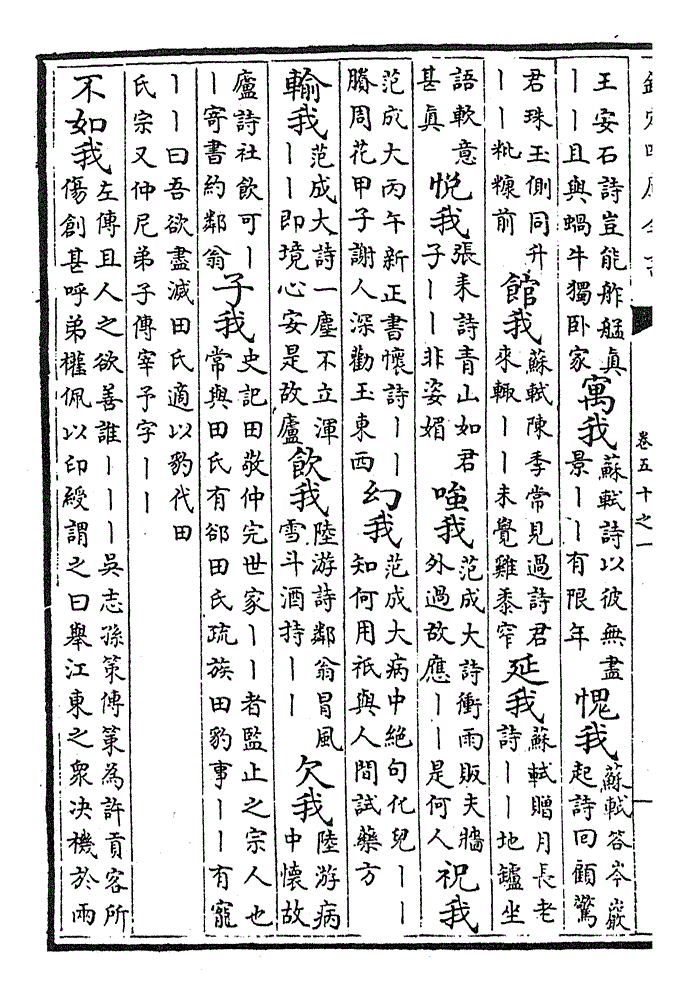 卷五十之一
王安石詩豈能舴艋真丨丨且與蝸牛獨卧家寓我蘇軾詩以彼無盡景丨丨有限年愧我蘇軾答岑巖起詩回顧驚
君珠玉側同升丨丨粃糠前館我蘇軾陳季常見過詩君來輙丨丨未覺雞黍窄延我蘇軾贈月長老詩丨丨地鑪坐
語軟意甚真悦我張耒詩青山如君子丨丨非姿媚嗤我范成大詩衝雨販夫墻外過故應丨丨是何人祝我
范成大丙午新正書懷詩丨丨賸周花甲子謝人深勸玉東西幻我范成大病中絶句化兒丨丨知何用祇與人間試藥方
輸我范成大詩一塵不立渾丨丨即境心安是故廬飲我陸游詩鄰翁冒風雪斗酒持丨丨欠我陸游病中懷故
廬詩社飲可丨丨寄書約鄰翁子我史記田敬仲完世家丨丨者監止之宗人也常與田氏有郤田氏疏族田豹事丨丨有寵
丨丨曰吾欲盡滅田氏適以豹代田氏宗又仲尼弟子傳宰予字丨丨
不如我左傳且人之欲善誰丨丨丨吳志孫策傳策為許貢客所傷創甚呼弟權佩以印綬謂之曰舉江東之衆決機於兩